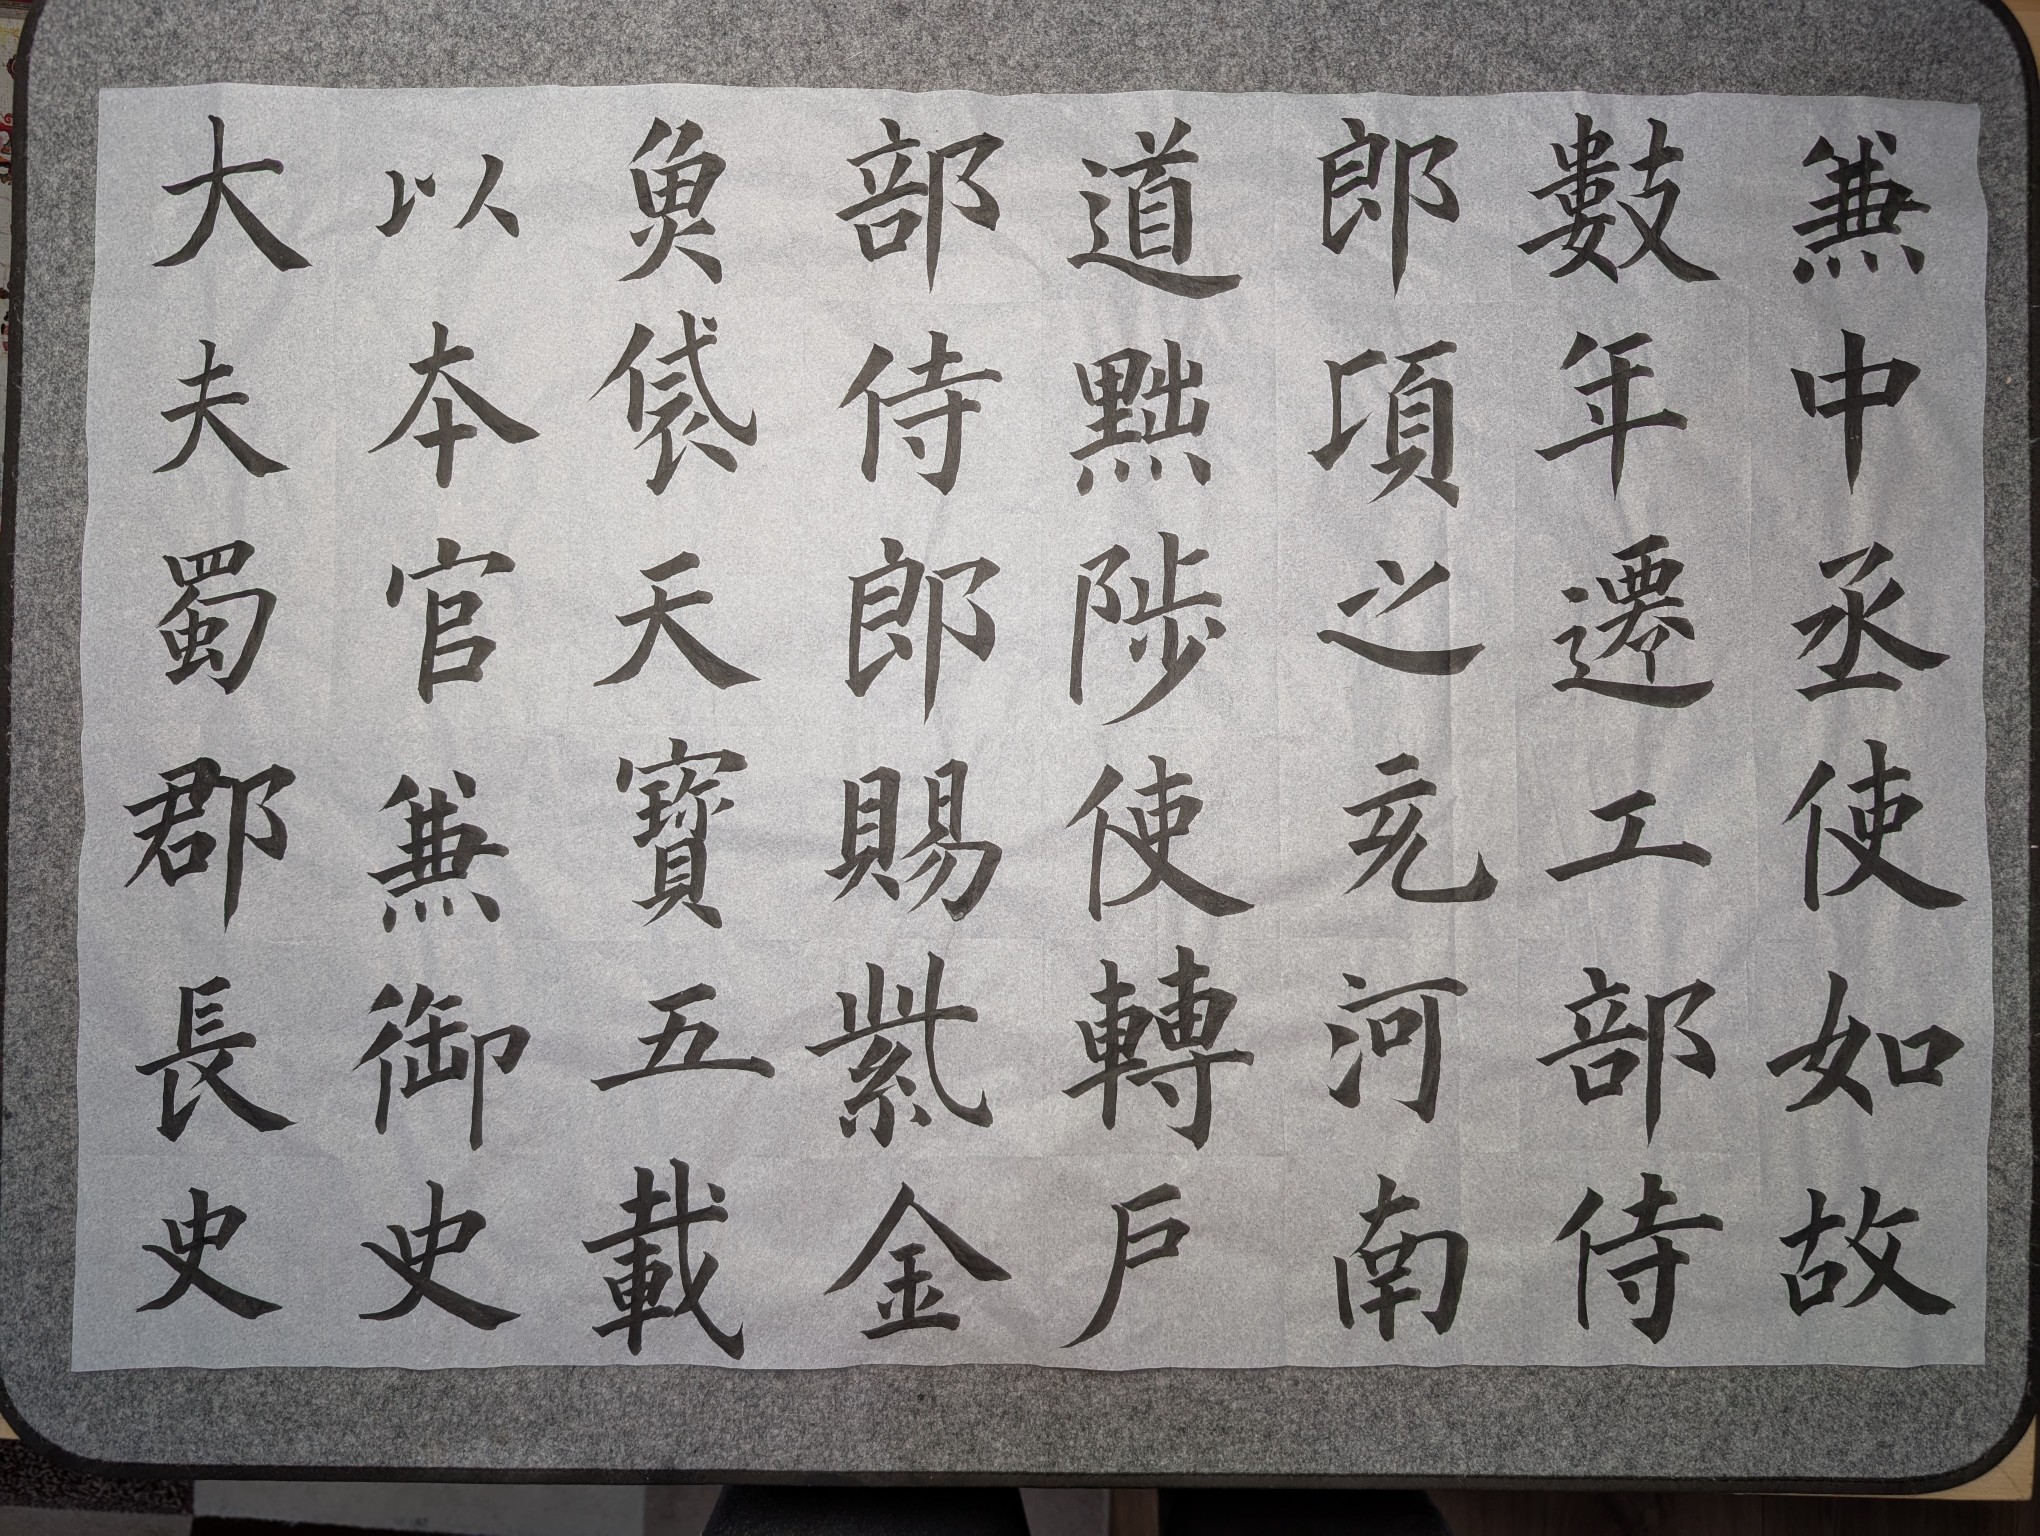 兼中丞使如故
數年遷工部侍
郎頃之充河南
道黜陟使轉戶
部侍郎賜紫金
魚袋天寶五載
以本官兼御史
大夫蜀郡長史